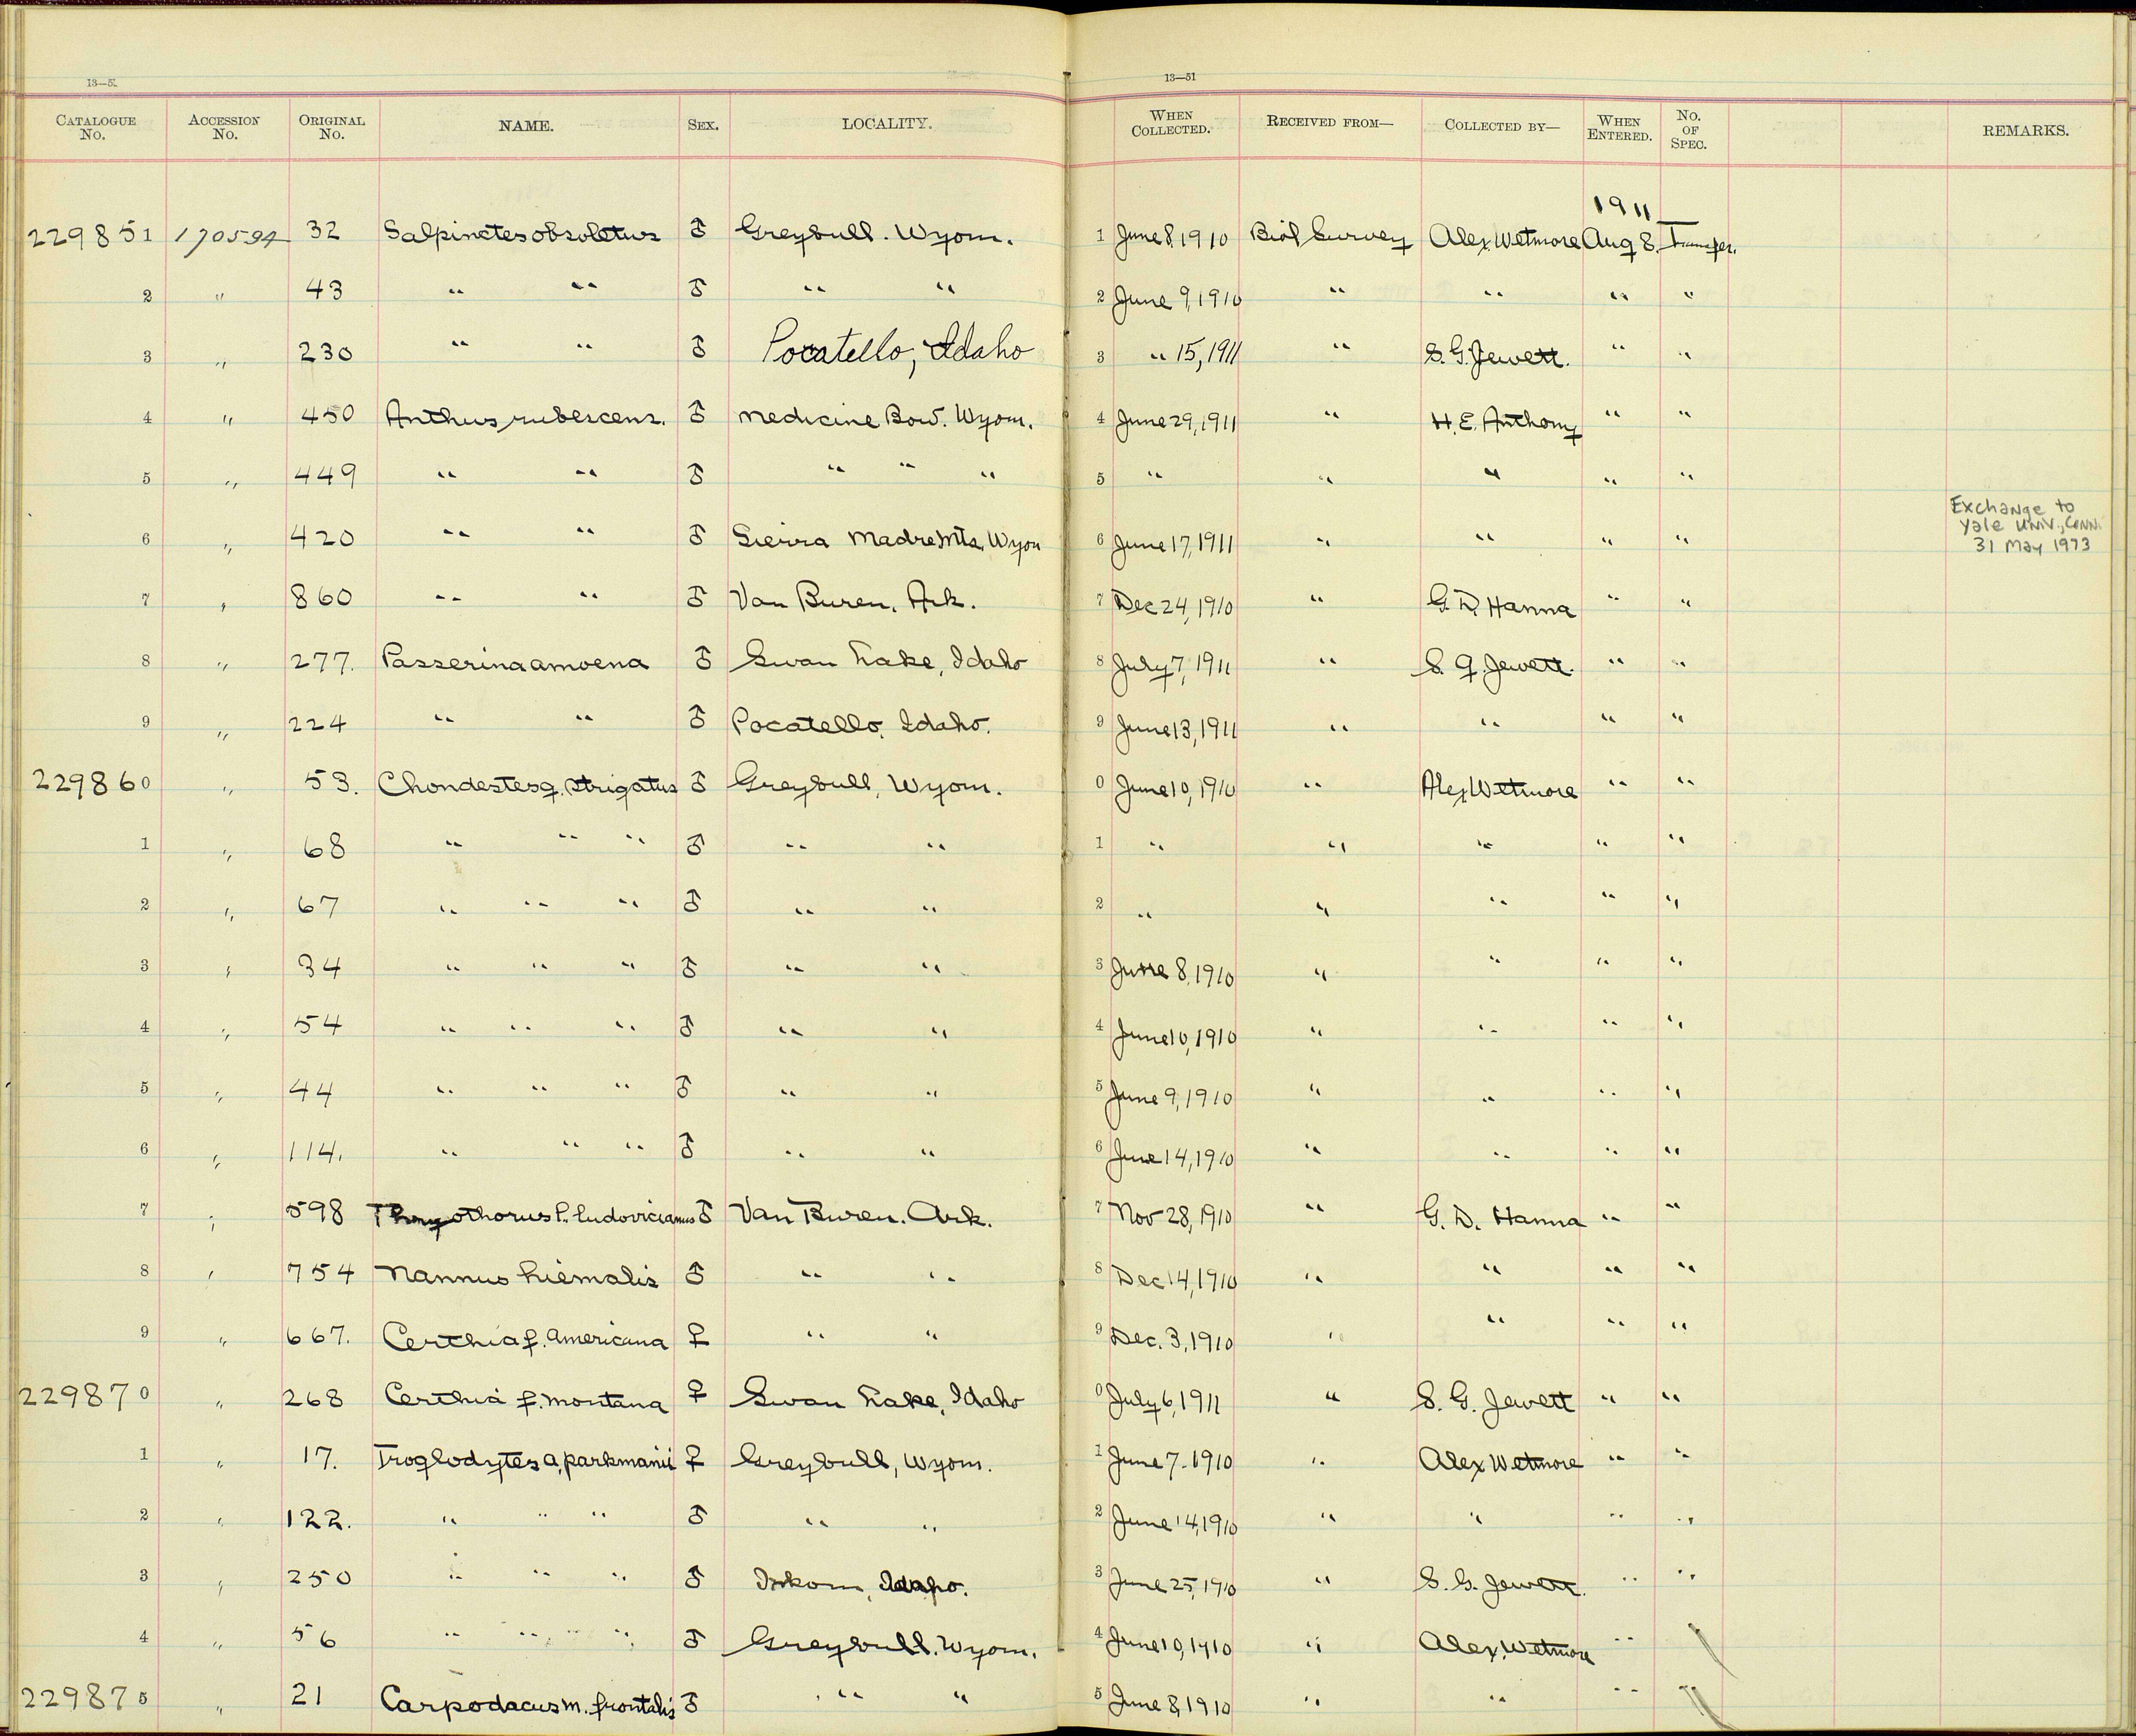 13—51
13—51
CATALOGUE No. ACCESSION No. ORIGINAL No. NAME. SEX. LOCALITY. WHEN COLLECTED. RECEIVED FROM— COLLECTED BY— WHEN ENTERED. No. OF SPEC. REMARKS.
1911
229851 170594 32 Salpinctes obsoletus ♂ Greybull. Wyom. 1 June 8, 1910 Biol Survey Alex Wetmore Aug 8. Transfer.
2 " 43 " " ♂ " " 2 June 9, 1910 " " " "
3 " 230 " " ♂ Pocatello, Idaho 3 " 15, 1911 " S. G. Jewett. " "
4 " 450 Anthus rubescens. ♂ Medicine Bow. Wyom. 4 June 29, 1911 " H. E. Anthony " "
5 " 449 " " ♂ " " " 5 " " " " "
6 " 420 " " ♂ Sierra Madre Mts. Wyom 6 June 17, 1911 " " " " Exchange to Yale Univ., Conn. 31 May 1973
7 " 860 " " ♂ Van Buren, Ark. 7 Dec 24, 1910 " G. D. Hanna " "
8 " 277. Passerina amoena ♂ Swan Lake, Idaho 8 July 7, 1911 " S. G. Jewett. " "
9 " 224 " " ♂ Pocatello, Idaho. 9 June 13, 1911 " " " "
229860 " 53. Chondestes g. strigatus ♂ Greybull, Wyom. 0 June 10, 1910 " Alex Wetmore " "
1 " 68 " " " ♂ " " 1 " " " " "
2 " 67 " " " ♂ " " 2 " " " " "
3 " 34 " " " ♂ " " 3 June 8, 1910 " " " "
4 " 54 " " " ♂ " " 4 June 10, 1910 " " " "
5 " 44 " " " ♂ " " 5 June 9, 1910 " " " "
6 " 114. " " " ♂ " " 6 June 14, 1910 " " " "
7 " 598 Thryothorus l. ludovicianus ♂ Van Buren. Ark. 7 Nov 28, 1910 " G. D. Hanna " "
8 " 754 Nannus hiemalis ♂ " " 8 Dec 14, 1910 " " " "
9 " 667. Certhia f. americana ♀ " " 9 Dec. 3, 1910 " " " "
229870 " 268 Certhia f. montana ♀ Swan Lake, Idaho 0 July 6, 1911 " S. G. Jewett " "
1 " 17. Troglodytes a. parkmanii ♀ Greybull, Wyom. 1 June 7. 1910 " Alex Wetmore " "
2 " 122. " " " ♂ " " 2 June 14, 1910 " " " "
3 " 250 " " " ♂ Inkom, Idaho. 3 June 25, 1910 " S. G. Jewett. " "
4 " 56 " " " " ♂ Greybull. Wyom. 4 June 10, 1910 " Alex. Wetmore "
229875 " 21 Carpodacus m. frontalis ♂ " " 5 June 8, 1910 " " "